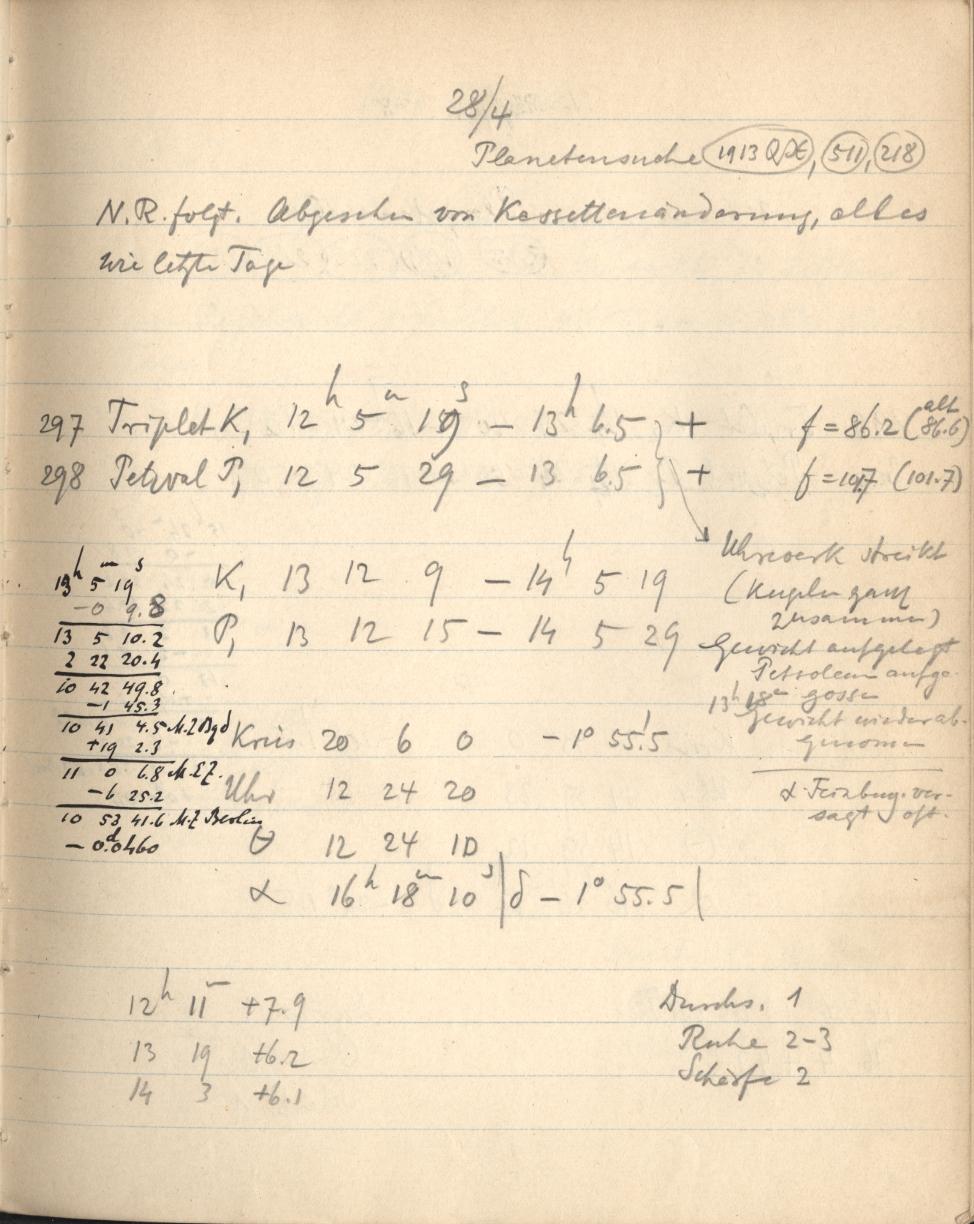 28/4
Planetensuche 1913 QX, 511, 218
N.R. folgt. Abgesehen von Kassettenänderung, alles
wie letzte Tage
297 Triplet K, 12h 5m 19s – 13h 6.5 + f = 86.2 (alt 86.6)
298 Petzval P, 12 5 29 – 13 6.5 + f = 101.7 (101.7)
K, 13 12 9 – 14h 5 19
P, 13 12 15 – 14 5 29
Uhrwerk streikt
(Kugeln ganz
zusammen)
Gewicht aufgelegt
Petroleum aufge-
13h 18m gossen
Gewicht wieder ab-
genommen
α Feinbeweg. ver-
sagt oft.
13h 5m 19s
–0 9.8
13 5 10.2
2 22 20.4
10 42 49.8
–1 45.3
10 41 4.5 M.Z. Bgd
+19 2.3
11 0 6.8 M.E.Z.
–6 25.2
10 53 41.6 M.Z. Berlin
– 0d.0460
Kreis 20 6 0 – 1° 55.'5
Uhr 12 24 20
θ 12 24 10
α 16h 18m 10s | δ – 1° 55.5 |
12h 11m +7.9
13 19 +6.2
14 3 +6.1
Durchs. 1
Ruhe 2–3
Schärfe 2